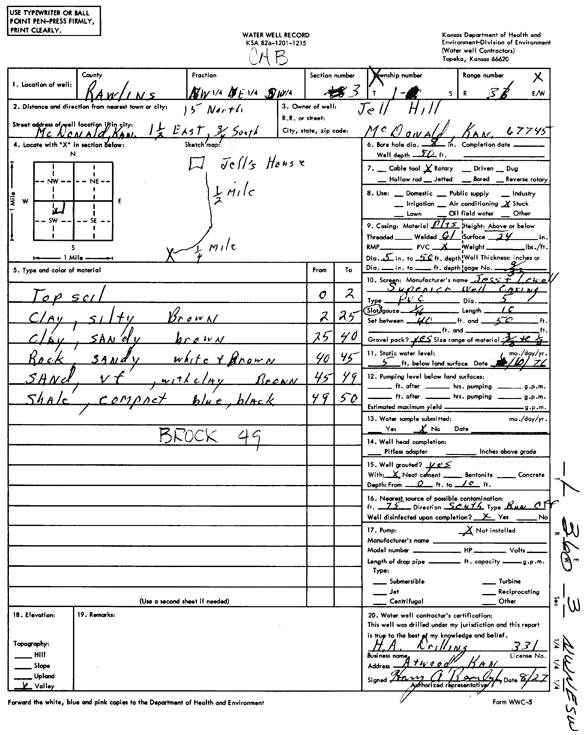 USE TYPEWRITER OR BALL
POINT PEN-PRESS FIRMLY,
PRINT CLEARLY.
WATER WELL RECORD
KSA 82a-1201-1215
CHB
Kansas Department of Health and
Environment-Division of Environment
(Water well Contractors)
Topeka, Kansas 66620
1. Location of well: County Rawlins Fraction NW 1/4 NE 1/4 SW 1/4 Section number 3 Township number T 1 S Range number R 36 E/W
2. Distance and direction from nearest town or city: 15 North
Street address of well location if in city: McDonald, Kan. 1 1/2 East, 3/4 South
3. Owner of well: Jell Hill
R.R. or street:
City, state, zip code: McDonald, Kan. 67745
4. Locate with "X" in section below:
Sketch map:
N
NW NE
W E
SW SE
S
1 Mile
1 Mile
Jell's House
1/2 Mile
X 1/4 Mile
5. Type and color of material From To
Top soil 0 2
Clay, silty Brown 2 25
Clay, sandy brown 25 40
Rock, sandy white & Brown 40 45
SAND, vf, with clay Brown 45 49
Shale, compact blue, black 49 50
BROCK 49
(Use a second sheet if needed)
6. Bore hole dia. 8 in. Completion date
Well depth 50 ft.
7. Cable tool X Rotary Driven Dug
Hollow rod Jetted Bored Reverse rotary
8. Use: Domestic Public supply Industry
Irrigation Air conditioning X Stock
Lawn Oil field water Other
9. Casing: Material Plas Height: Above or below
Threaded Welded Gl Surface 24 in.
RMP PVC X Weight lbs./ft.
Dia. 5 in. to 50 ft. depth Wall Thickness: inches or
Dia. in. to ft. depth gage No.
10. Screen: Manufacturer's name Jess & Lowell
Superior Well Casing
Type PVC Dia. 5
Slot/gauze Length 10
Set between 40 ft. and 50 ft.
ft. and ft.
Gravel pack? yes Size range of material
11. Static water level: mo./day/yr.
5 ft. below land surface Date 6/10/76
12. Pumping level below land surfaces:
ft. after hrs. pumping g.p.m.
ft. after hrs. pumping g.p.m.
Estimated maximum yield g.p.m.
13. Water sample submitted: mo./day/yr.
Yes X No Date
14. Well head completion:
Pitless adapter Inches above grade
15. Well grouted? yes
With: X Neat cement Bentonite Concrete
Depth: From 0 ft. to 10 ft.
16. Nearest source of possible contamination:
ft. 75 Direction South Type Run Off
Well disinfected upon completion? X Yes No
17. Pump: X Not installed
Manufacturer's name
Model number HP Volts
Length of drop pipe ft. capacity g.p.m.
Type:
Submersible Turbine
Jet Reciprocating
Centrifugal Other
18. Elevation:
Topography:
Hill
Slope
Upland
X Valley
19. Remarks:
20. Water well contractor's certification:
This well was drilled under my jurisdiction and this report
is true to the best of my knowledge and belief.
H.A. Drilling 331
Business name License No.
Address Atwood, Kan
Signed Date 8/27
Authorized representative
Forward the white, blue and pink copies to the Department of Health and Environment
Form WWC-5
T 1 R 36W Sec 3 1/4 1/4 1/4 NWNESW